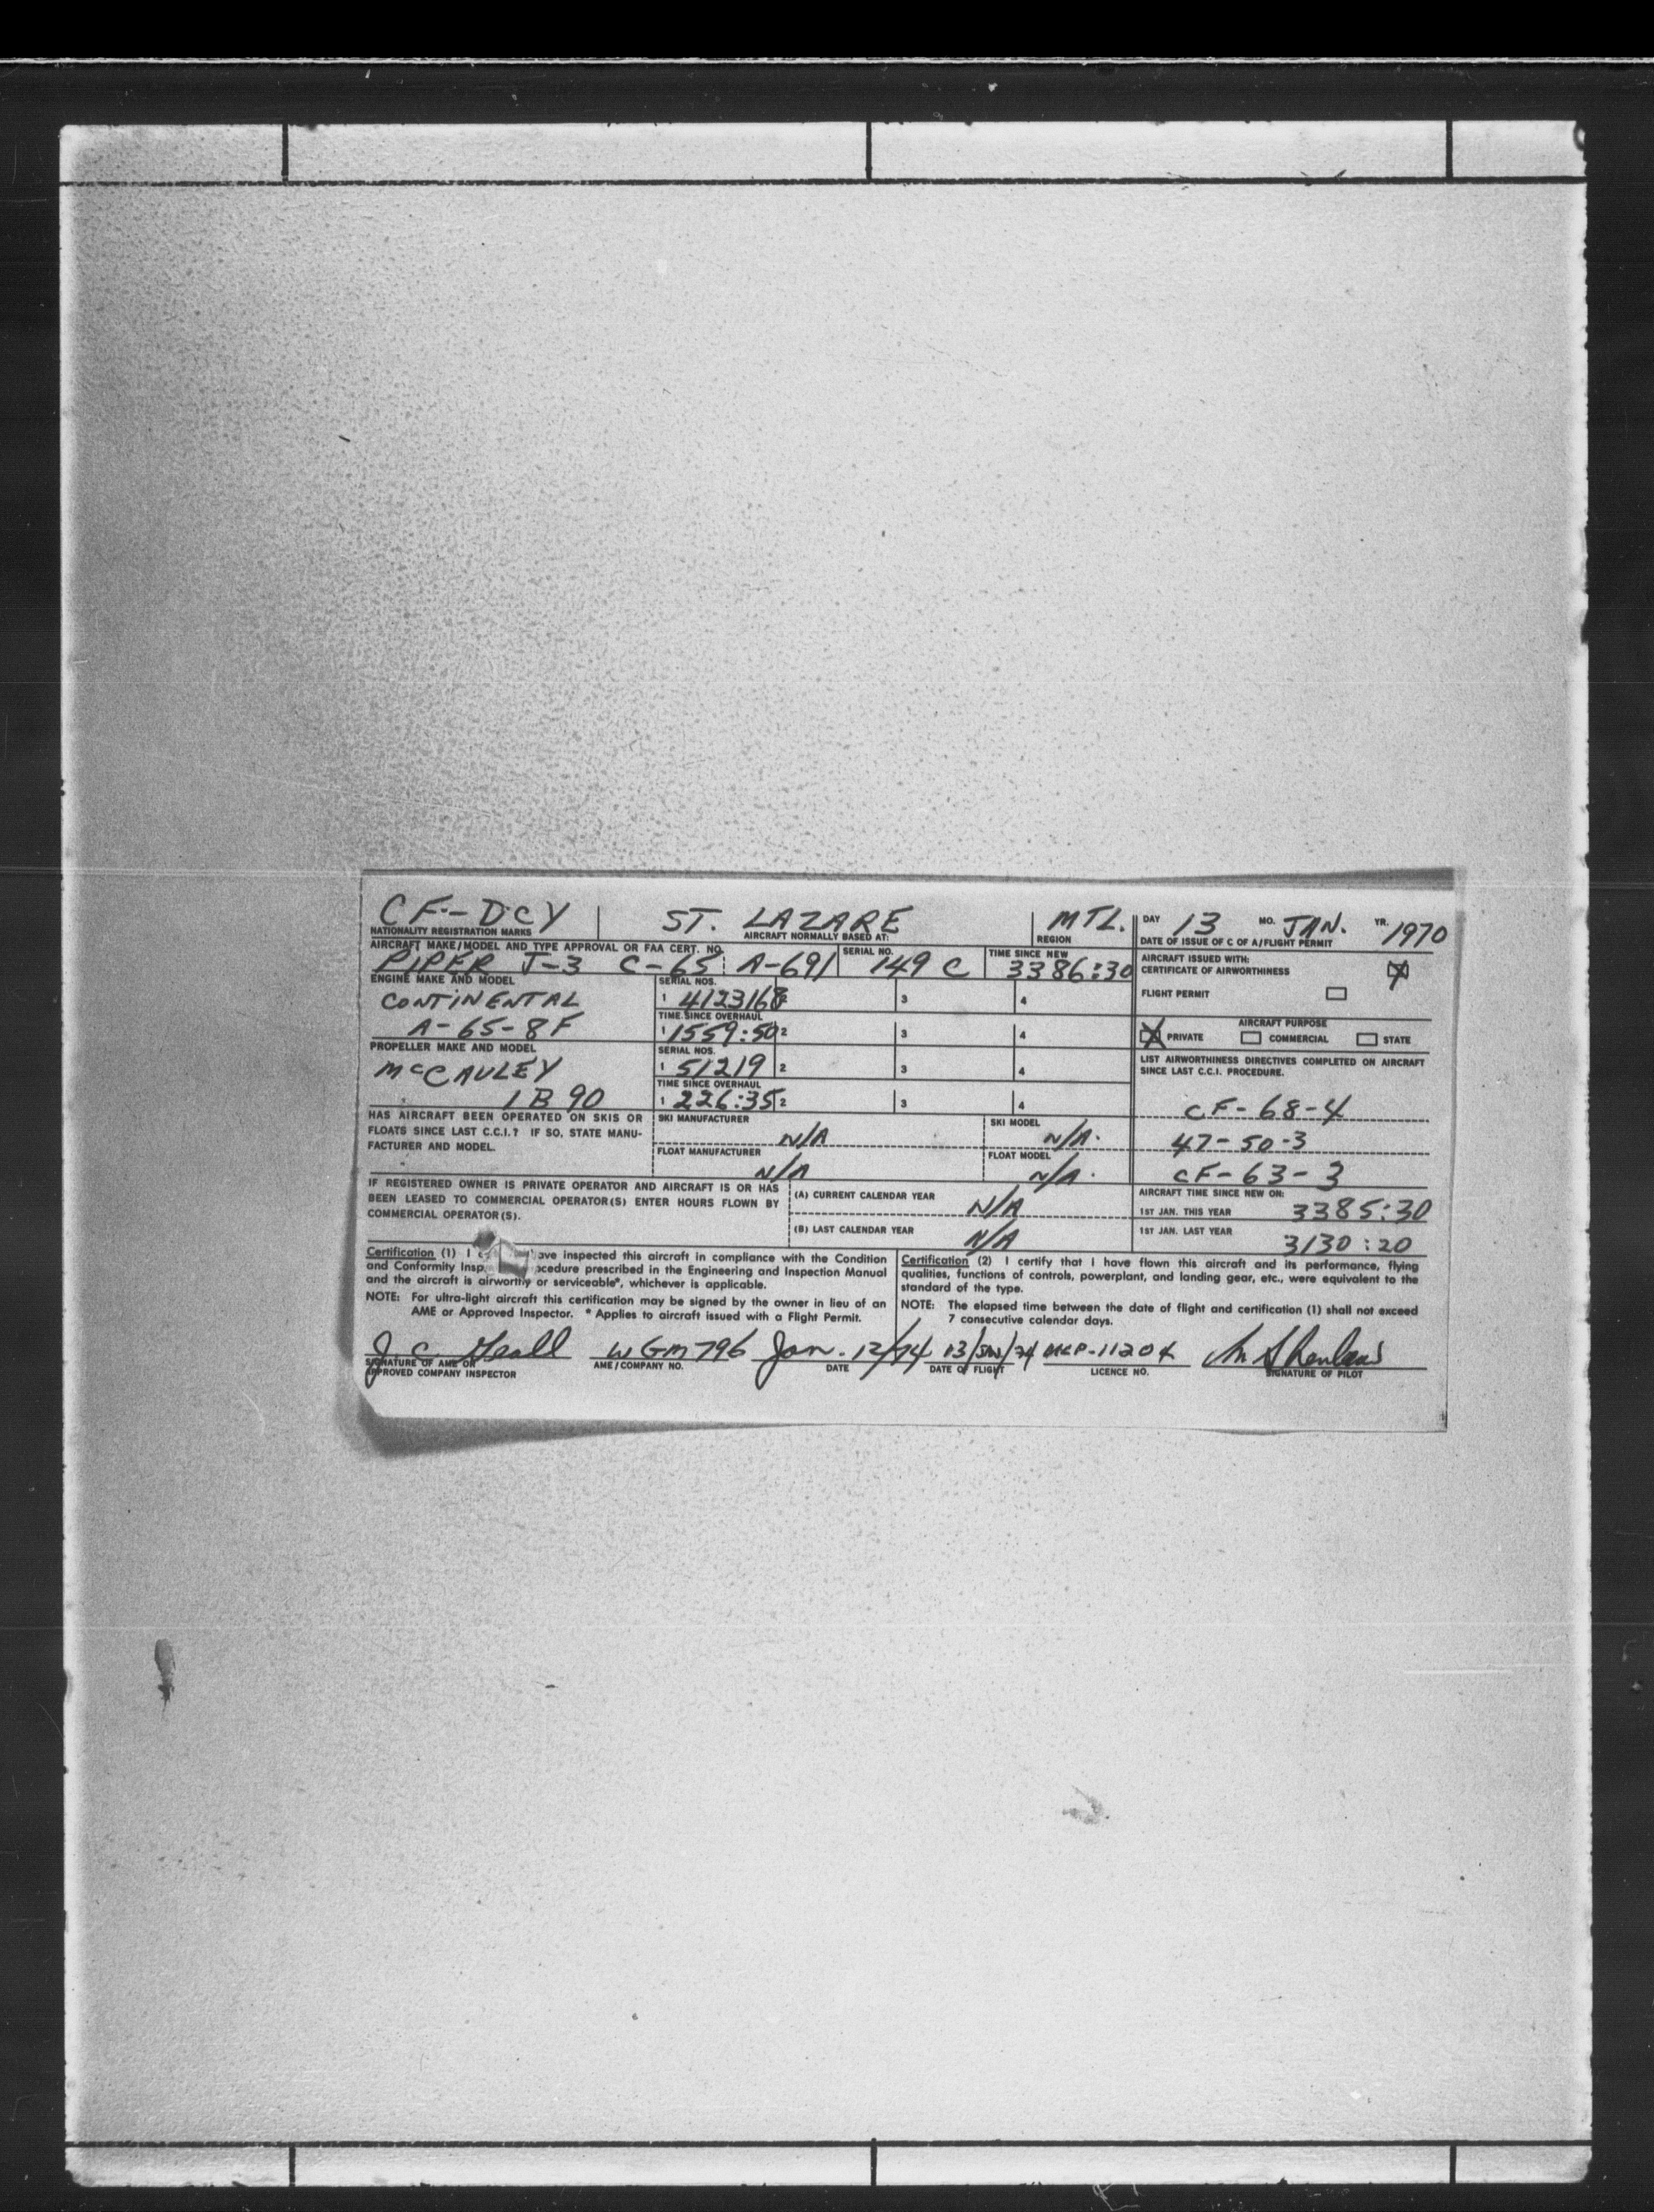 CF-DCY ST. LAZARE MTL. DAY 13 MO. JAN. YR. 1970
NATIONALITY REGISTRATION MARKS AIRCRAFT NORMALLY BASED AT: REGION DATE OF ISSUE OF C OF A/FLIGHT PERMIT
AIRCRAFT MAKE/MODEL AND TYPE APPROVAL OR FAA CERT. NO. SERIAL NO. TIME SINCE NEW
PIPER J-3 C-65 A-691 149 C 3386:30
AIRCRAFT ISSUED WITH:
CERTIFICATE OF AIRWORTHINESS X
FLIGHT PERMIT
ENGINE MAKE AND MODEL SERIAL NOS.
CONTINENTAL 1 4123168 3 4
TIME SINCE OVERHAUL
A-65-8F 1 1559:50 2 3 4
AIRCRAFT PURPOSE
X PRIVATE COMMERCIAL STATE
PROPELLER MAKE AND MODEL SERIAL NOS.
McCAULEY 1 51219 2 3 4
TIME SINCE OVERHAUL
1B90 1 226:35 2 3 4
LIST AIRWORTHINESS DIRECTIVES COMPLETED ON AIRCRAFT
SINCE LAST C.C.I. PROCEDURE.
CF-68-4
47-50-3
CF-63-3
HAS AIRCRAFT BEEN OPERATED ON SKIS OR
FLOATS SINCE LAST C.C.I.? IF SO, STATE MANU-
FACTURER AND MODEL.
SKI MANUFACTURER N/A SKI MODEL N/A.
FLOAT MANUFACTURER N/A FLOAT MODEL N/A.
IF REGISTERED OWNER IS PRIVATE OPERATOR AND AIRCRAFT IS OR HAS
BEEN LEASED TO COMMERCIAL OPERATOR(S) ENTER HOURS FLOWN BY
COMMERCIAL OPERATOR(S).
(A) CURRENT CALENDAR YEAR N/A
(B) LAST CALENDAR YEAR N/A
AIRCRAFT TIME SINCE NEW ON:
1ST JAN. THIS YEAR 3385:30
1ST JAN. LAST YEAR 3130:20
Certification (1) I have inspected this aircraft in compliance with the Condition
and Conformity procedure prescribed in the Engineering and Inspection Manual
and the aircraft is airworthy or serviceable*, whichever is applicable.
NOTE: For ultra-light aircraft this certification may be signed by the owner in lieu of an
AME or Approved Inspector. * Applies to aircraft issued with a Flight Permit.
Certification (2) I certify that I have flown this aircraft and its performance, flying
qualities, functions of controls, powerplant, and landing gear, etc., were equivalent to the
standard of the type.
NOTE: The elapsed time between the date of flight and certification (1) shall not exceed
7 consecutive calendar days.
J. C. WGM796 Jan. 12/74 13/JAN/74
SIGNATURE OF AME OR AME/COMPANY NO. DATE DATE OF FLIGHT LICENCE NO. SIGNATURE OF PILOT
APPROVED COMPANY INSPECTOR